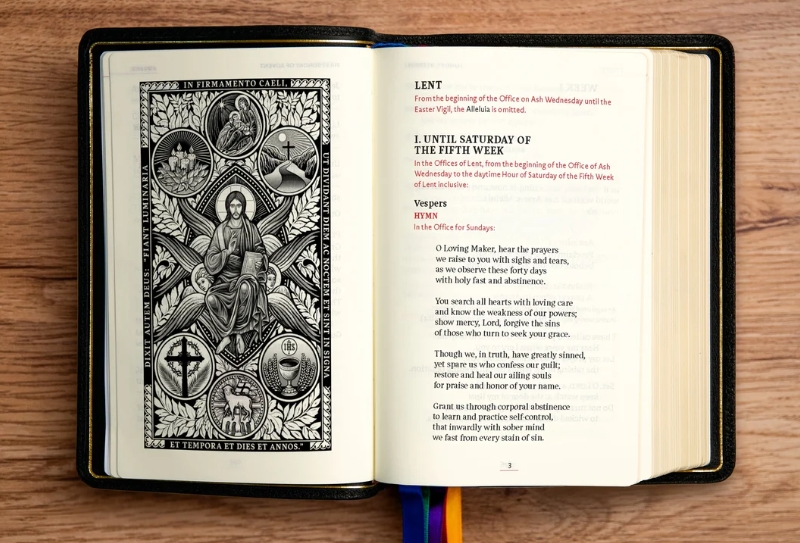 IN FIRMAMENTO CAELI,
UT DIVIDANT DIEM AC NOCTEM ET SINT IN SIGNA
DIXIT AUTEM DEUS: "FIANT LUMINARIA
ET TEMPORA ET DIES ET ANNOS."
IHS
LENT
From the beginning of the Office on Ash Wednesday until the
Easter Vigil, the Alleluia is omitted.
I. UNTIL SATURDAY OF
THE FIFTH WEEK
In the Offices of Lent, from the beginning of the Office of Ash
Wednesday to the daytime Hour of Saturday of the Fifth Week
of Lent inclusive:
Vespers
HYMN
In the Office for Sundays:
O Loving Maker, hear the prayers
we raise to you with sighs and tears,
as we observe these forty days
with holy fast and abstinence.
You search all hearts with loving care
and know the weakness of our powers;
show mercy, Lord, forgive the sins
of those who turn to seek your grace.
Though we, in truth, have greatly sinned,
yet spare us who confess our guilt;
restore and heal our ailing souls
for praise and honor of your name.
Grant us through corporal abstinence
to learn and practice self-control,
that inwardly with sober mind
we fast from every stain of sin.
3